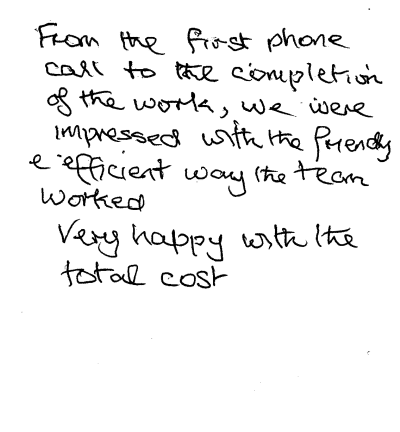 From the first phone
call to the completion
of the work, we were
impressed with the friendly
e efficient way the team
worked
Very happy with the
total cost